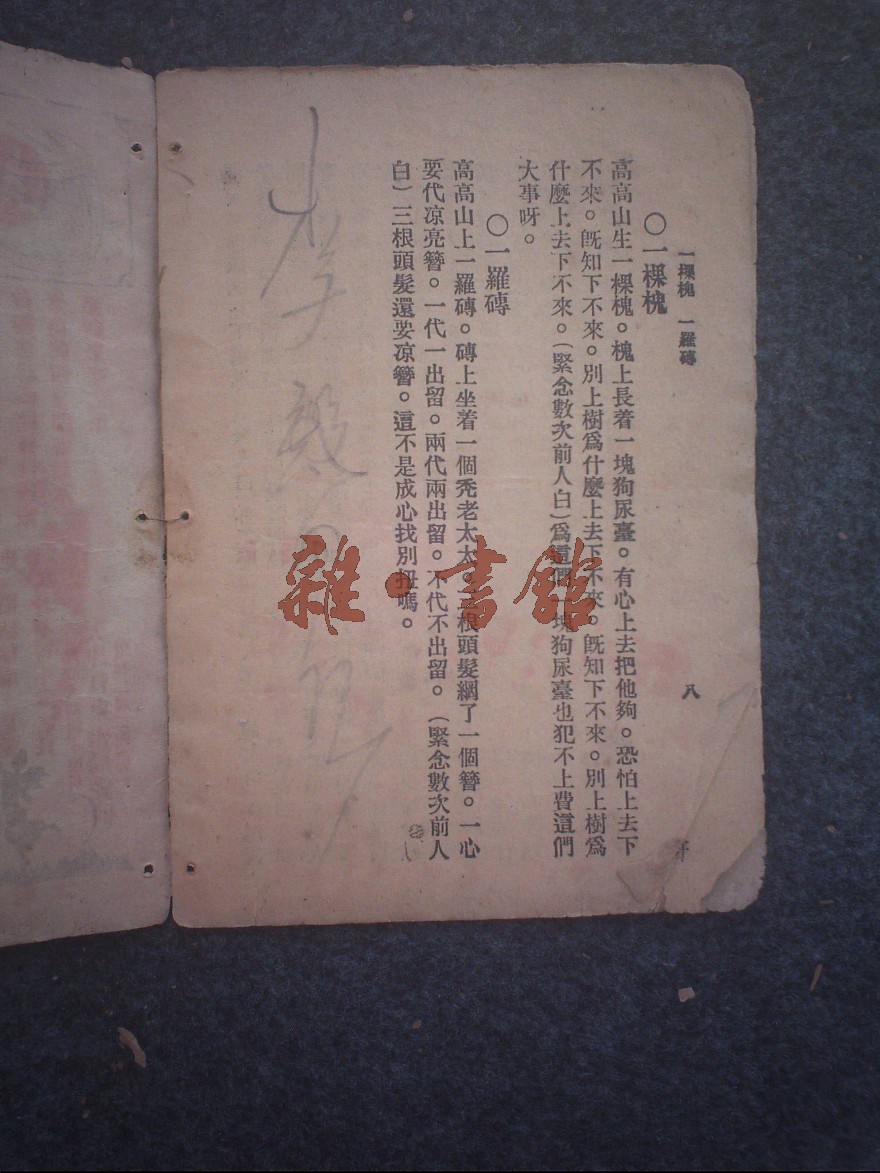 一棵槐　一羅磚
八
〇一棵槐
高高山生一棵槐。槐上長着一塊狗尿臺。有心上去把他夠。恐怕上去下
不來。旣知下不來。別上樹爲什麼上去下不來。旣知下不來。別上樹爲
什麼上去下不來。(緊念數次前人白)爲這們一塊狗尿臺也犯不上費這們
大事呀。
〇一羅磚
高高山上一羅磚。磚上坐着一個禿老太太。三根頭髮綱了一個簪。一心
要代凉亮簪。一代一出留。兩代兩出留。不代不出留。(緊念數次前人
白)三根頭髮還要凉簪。這不是成心找別扭嗎。
雜·書館